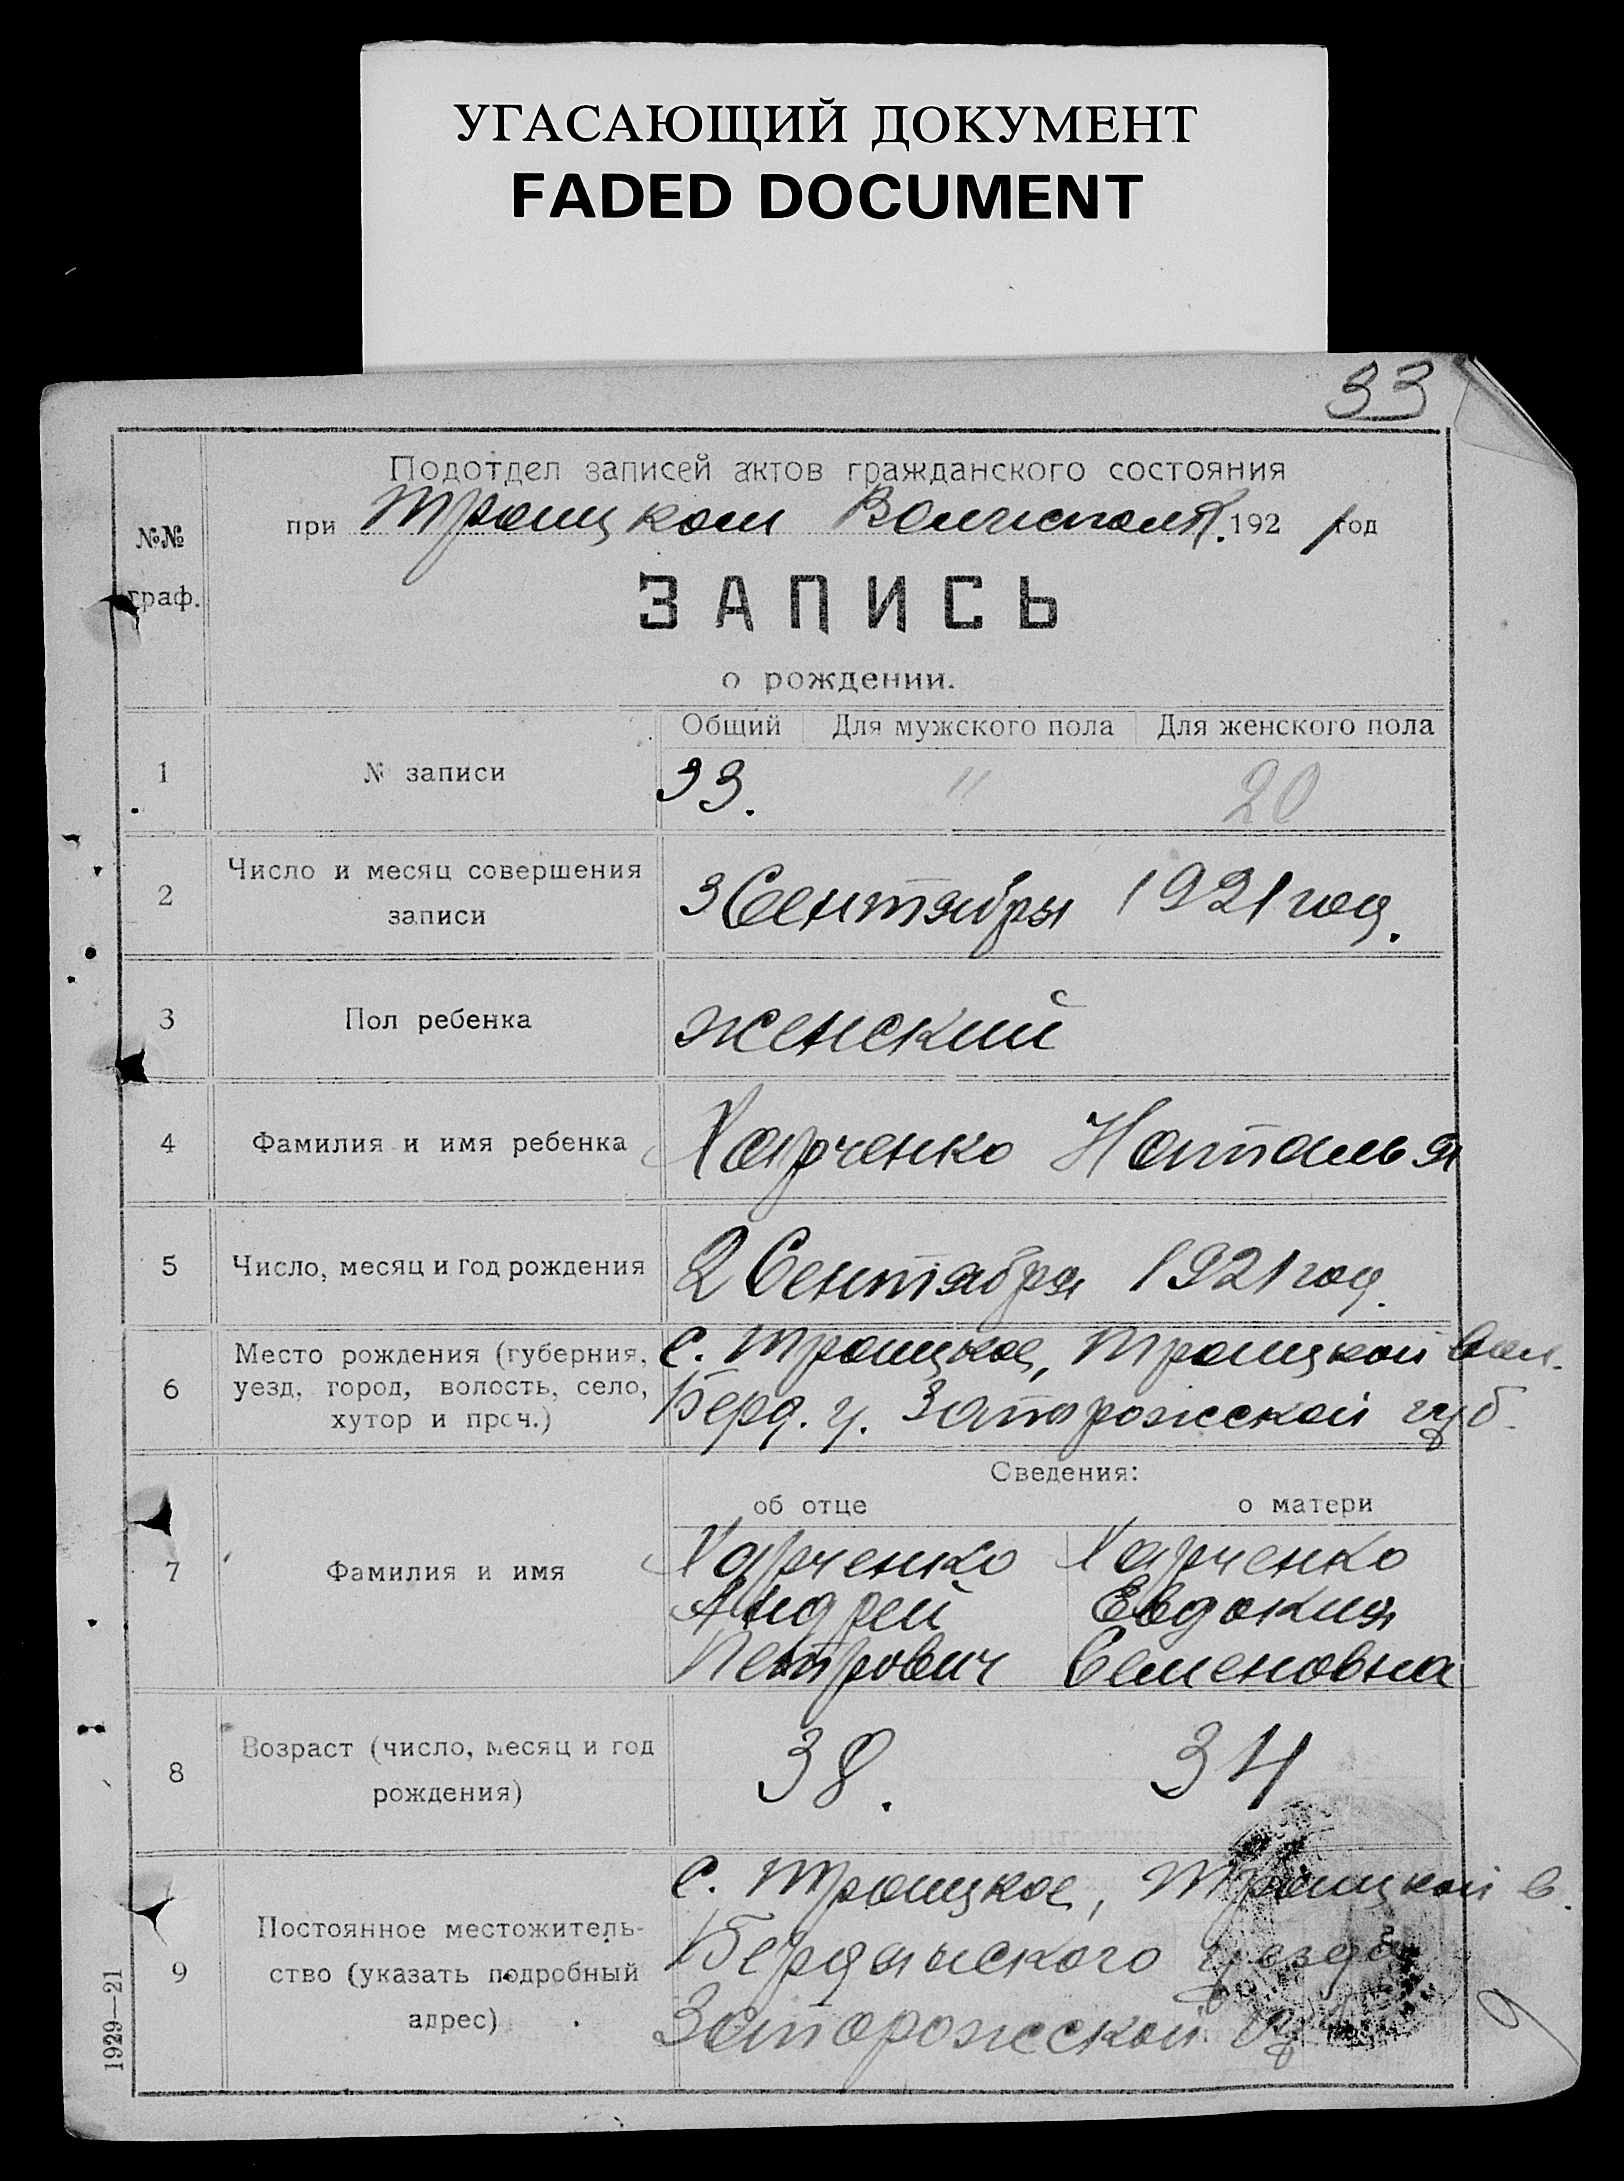 УГАСАЮЩИЙ ДОКУМЕНТ
FADED DOCUMENT
33
Подотдел записей актов гражданского состояния
№№ граф.
при Троицком Волисполк. 1921 год
ЗАПИСЬ
о рождении.
Общий Для мужского пола Для женского пола
1 № записи 33. " 20
2 Число и месяц совершения
записи
3 Сентября 1921 год.
3 Пол ребенка женский
4 Фамилия и имя ребенка Харченко Наталья
5 Число, месяц и год рождения 2 Сентября 1921 год.
6 Место рождения (губерния,
уезд, город, волость, село,
хутор и проч.)
с. Троицкое, Троицкой вол.
Берд. у. Запорожской губ.
Сведения:
об отце о матери
7 Фамилия и имя
Харченко Харченко
Андрей Евдокия
Петрович Семеновна
8 Возраст (число, месяц и год
рождения)
38. 34
9 Постоянное местожитель-
ство (указать подробный
адрес)
с. Троицкое, Троицкой в.
Бердянского уезда
Запорожской
1929—21